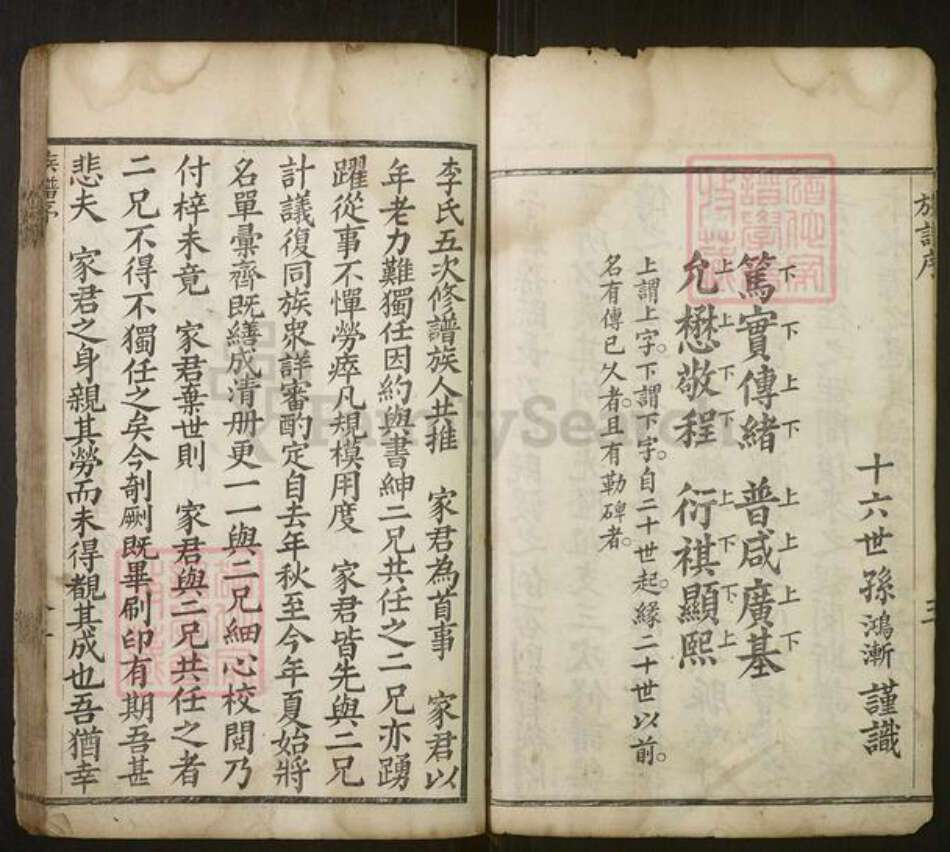 族譜序
十六世孫鴻漸謹識
下 下 上 下 上 上 上 下
篤實傳緒 普咸廣基
上 上 下 下 上 下 下 上
允懋敬程 衍祺顯熙
上謂上字。下謂下字。自二十世起。緣二十世以前。
名有傳已久者。且有勒碑者。
李氏五次修譜族人共推 家君為首事 家君以
年老力難獨任因約與書紳二兄共任之二兄亦踴
躍從事不憚勞瘁凡規模用度 家君皆先與二兄
計議復同族眾詳審酌定自去年秋至今年夏始將
名單彙齊既繕成清册更一一與二兄細心校閱乃
付梓未竟 家君棄世則 家君與二兄共任之者
二兄不得不獨任之矣今剞劂既畢刷印有期吾甚
悲夫 家君之身親其勞而未得觀其成也吾猶幸
族譜序
FamilySearch